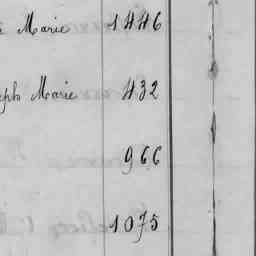 Marie 1446
eph Marie 432
966
1075